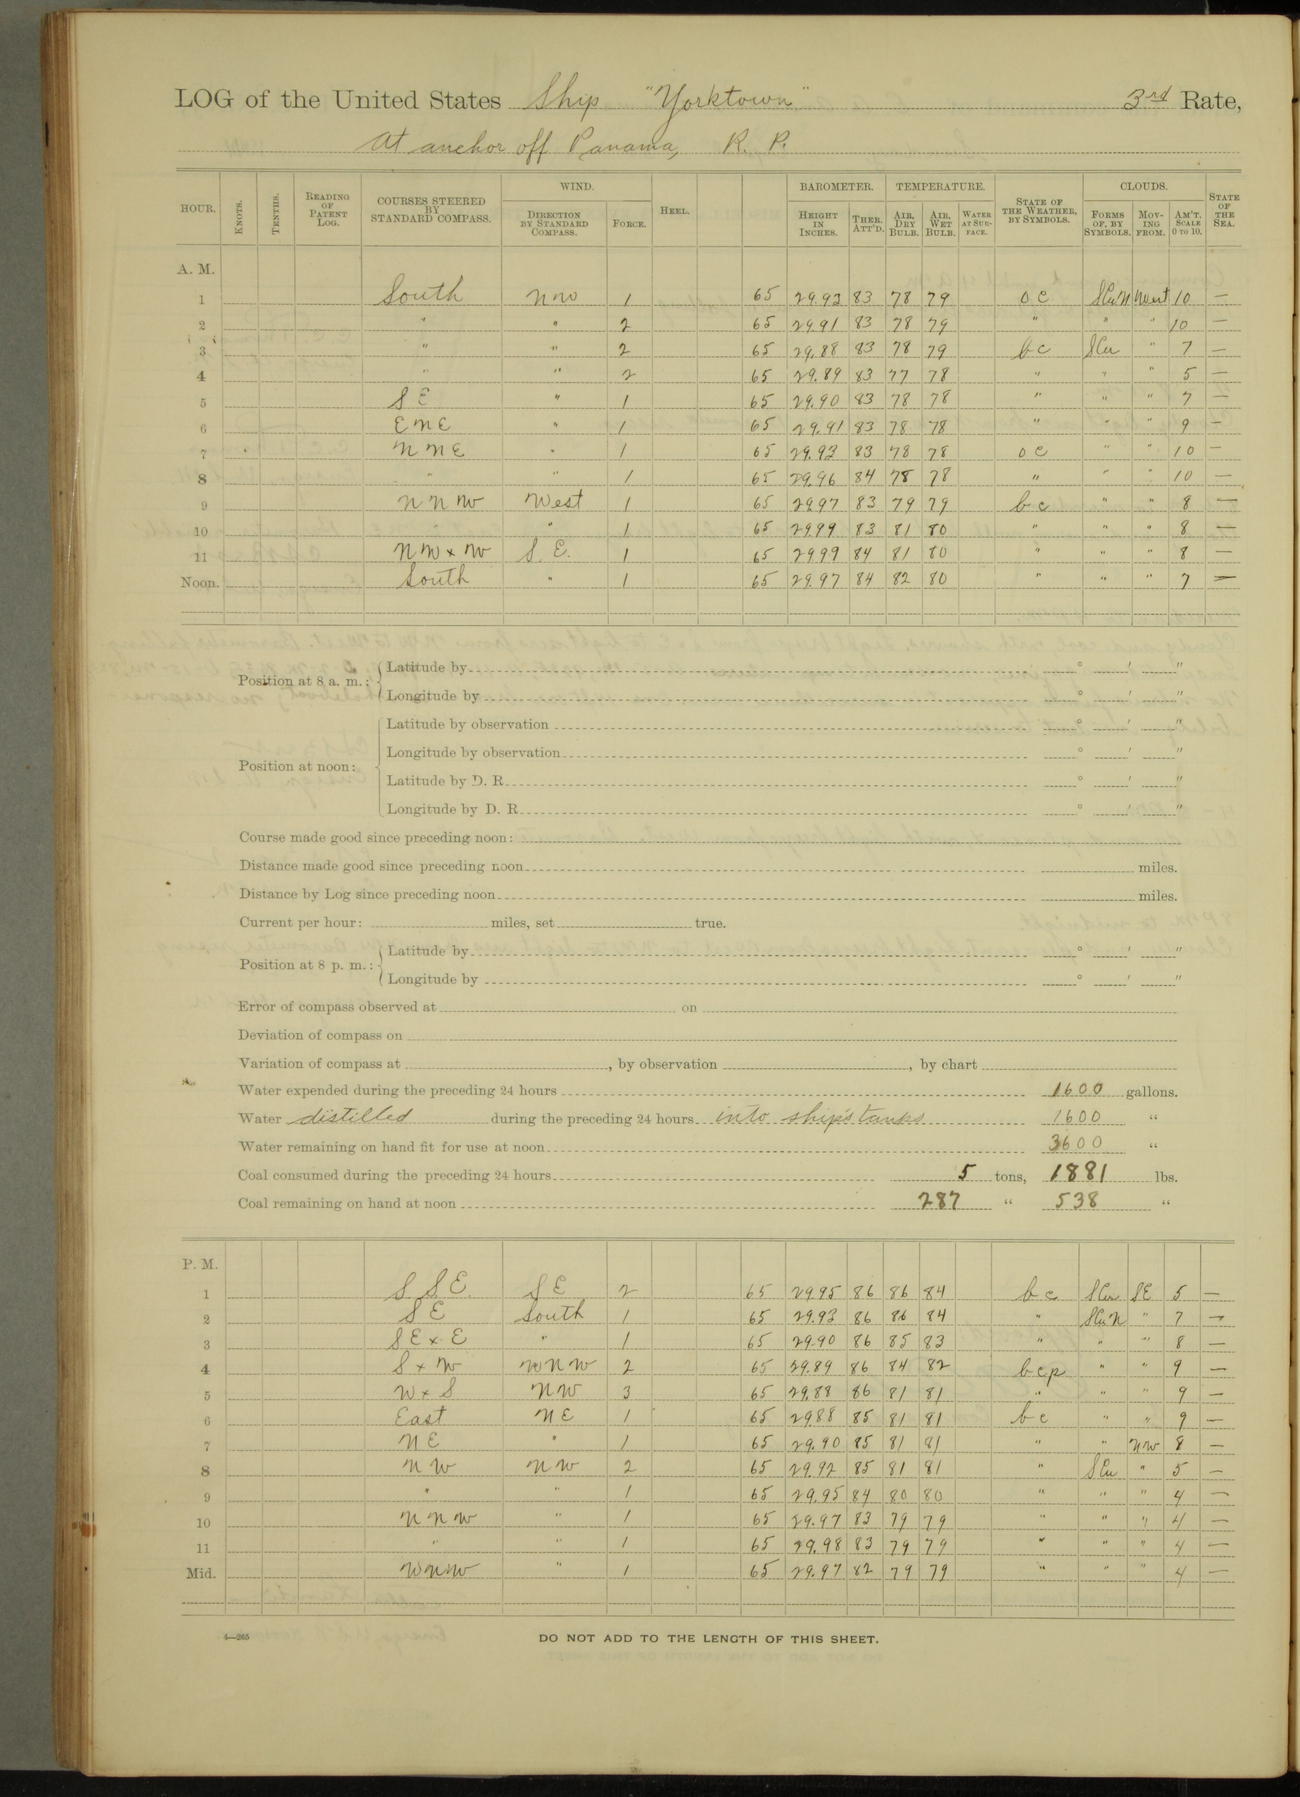 LOG of the United States Ship "Yorktown" 3rd Rate,
At anchor off Panama, R. P.
HOUR. KNOTS. TENTHS. READING OF PATENT LOG. COURSES STEERED BY STANDARD COMPASS. WIND. DIRECTION BY STANDARD COMPASS. FORCE. HEEL. BAROMETER. HEIGHT IN INCHES. THER. ATT'D. TEMPERATURE. AIR, DRY BULB. AIR, WET BULB. WATER AT SURFACE. STATE OF THE WEATHER, BY SYMBOLS. CLOUDS. FORMS OF, BY SYMBOLS. MOVING FROM. AM'T. SCALE 0 TO 10. STATE OF THE SEA.
A. M.
1 South NNW 1 65 29.93 83 78 79 o c SCuN West 10 —
2 " " 2 65 29.91 83 78 79 " " " 10 —
3 " " 2 65 29.88 83 78 79 b c SCu " 7 —
4 " " 2 65 29.89 83 77 78 " " " 5 —
5 S E " 1 65 29.90 83 78 78 " " " 7 —
6 E N E " 1 65 29.91 83 78 78 " " " 9 —
7 N N E " 1 65 29.93 83 78 78 o c " " 10 —
8 " " 1 65 29.96 84 78 78 " " " 10 —
9 N N W West 1 65 29.97 83 79 79 b c " " 8 —
10 " " 1 65 29.99 83 81 80 " " " 8 —
11 N W x W S. E. 1 65 29.99 84 81 80 " " " 8 —
Noon. South " 1 65 29.97 84 82 80 " " " 7 —
Position at 8 a. m.: Latitude by ° ' "
Longitude by ° ' "
Position at noon: Latitude by observation ° ' "
Longitude by observation ° ' "
Latitude by D. R. ° ' "
Longitude by D. R. ° ' "
Course made good since preceding noon:
Distance made good since preceding noon miles.
Distance by Log since preceding noon miles.
Current per hour: miles, set true.
Position at 8 p. m.: Latitude by ° ' "
Longitude by ° ' "
Error of compass observed at on
Deviation of compass on
Variation of compass at , by observation , by chart
Water expended during the preceding 24 hours 1600 gallons.
Water distilled during the preceding 24 hours into ship's tanks 1600 "
Water remaining on hand fit for use at noon 3600 "
Coal consumed during the preceding 24 hours 5 tons, 1881 lbs.
Coal remaining on hand at noon 287 " 538 "
P. M.
1 S S E. S E 2 65 29.95 86 86 84 b c SCu SE 5 —
2 S E South 1 65 29.93 86 86 84 " SCuN " 7 —
3 S E x E " 1 65 29.90 86 85 83 " " " 8 —
4 S x W WNW 2 65 29.89 86 84 82 b c p " " 9 —
5 W x S NW 3 65 29.88 86 81 81 " " " 9 —
6 East N E 1 65 29.88 85 81 81 b c " " 9 —
7 N E " 1 65 29.90 85 81 81 " " NW 8 —
8 N W N W 2 65 29.92 85 81 81 " SCu " 5 —
9 " " 1 65 29.95 84 80 80 " " " 4 —
10 N N W " 1 65 29.97 83 79 79 " " " 4 —
11 " " 1 65 29.98 83 79 79 " " " 4 —
Mid. WNW " 1 65 29.97 82 79 79 " " " 4 —
4—265
DO NOT ADD TO THE LENGTH OF THIS SHEET.